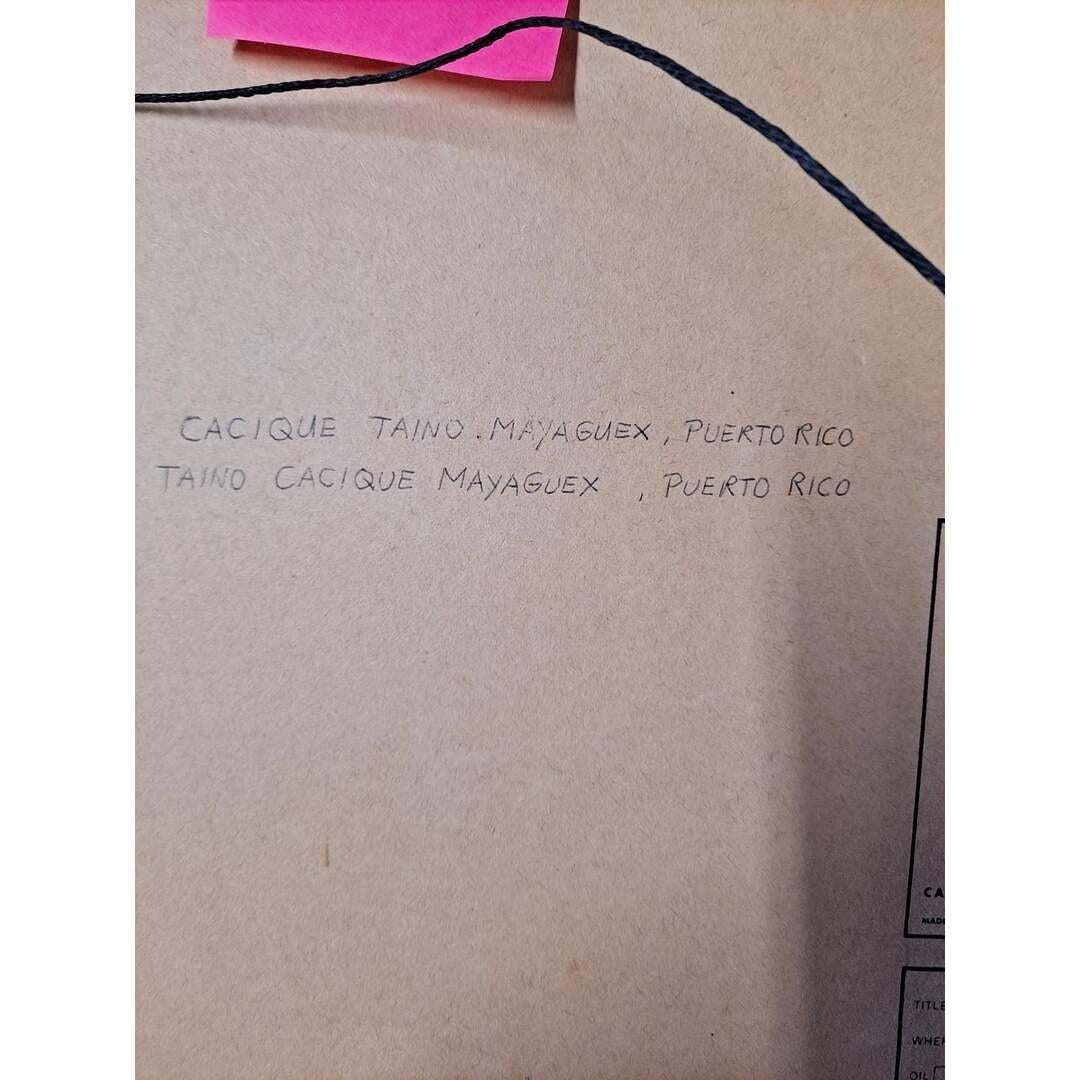 CACIQUE TAINO. MAYAGUEX, PUERTO RICO
TAINO CACIQUE MAYAGUEX , PUERTO RICO
CA
MADE
TITLE
WHER
OIL